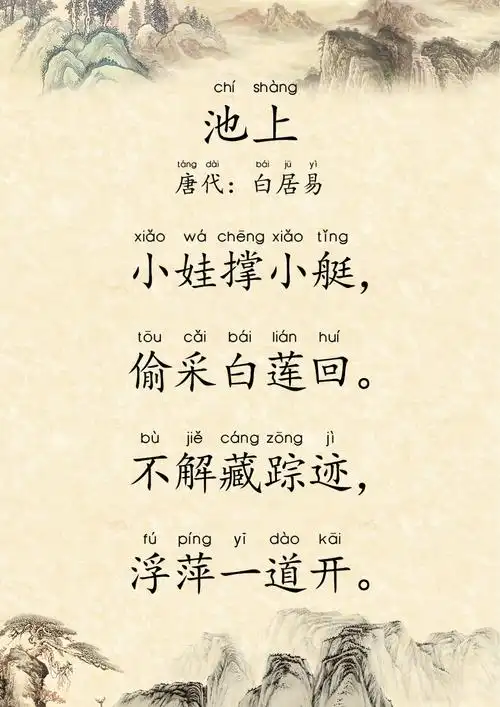 chí shàng
池上
táng dài bái jū yì
唐代：白居易
xiǎo wá chēng xiǎo tǐng
小娃撑小艇，
tōu cǎi bái lián huí
偷采白莲回。
bù jiě cáng zōng jì
不解藏踪迹，
fú píng yī dào kāi
浮萍一道开。